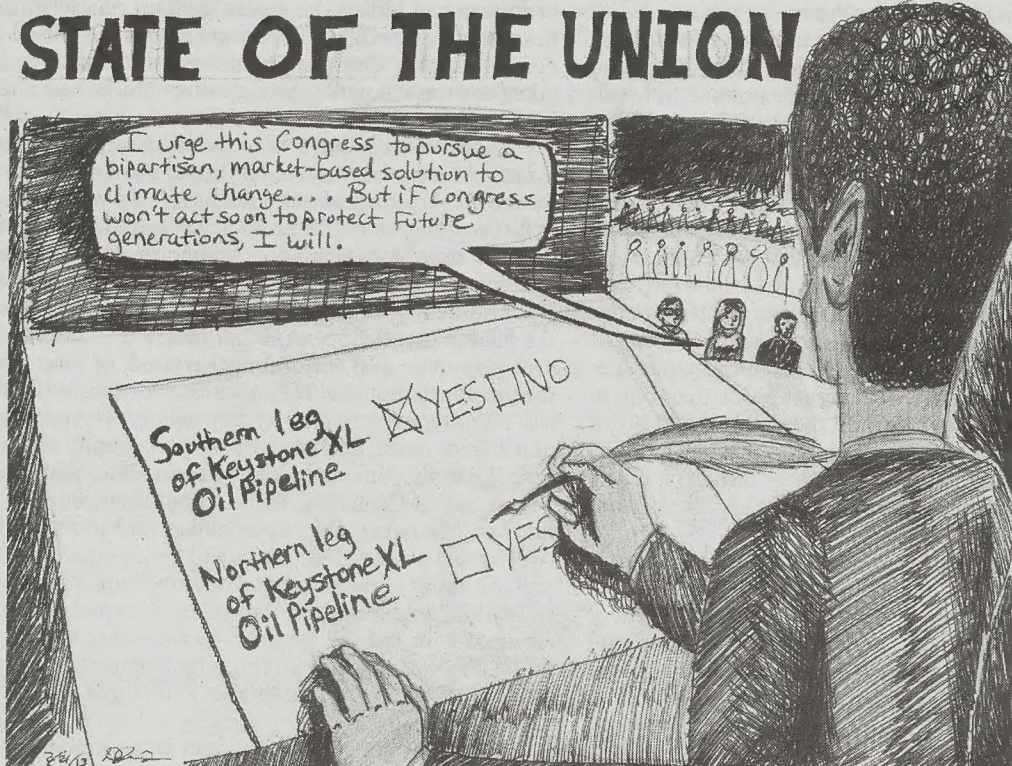 STATE OF THE UNION
I urge this Congress to pursue a
bipartisan, market-based solution to
climate change.... But if Congress
won't act soon to protect future
generations, I will.
Southern leg
of Keystone XL
Oil Pipeline
YES NO
Northern leg
of Keystone XL
Oil Pipeline
YES